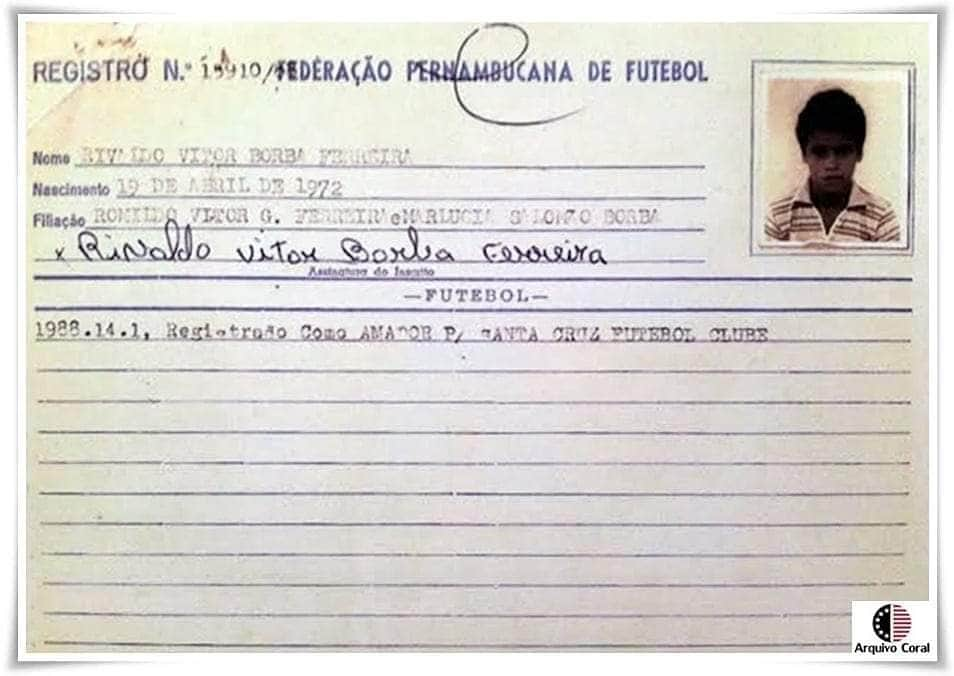 REGISTRO N.º 15910/ FEDERAÇÃO PERNAMBUCANA DE FUTEBOL
Nome RIVALDO VITOR BORBA FERREIRA
Nascimento 19 DE ABRIL DE 1972
Filiação ROMILDO VITOR G. FERREIRA e MARLUCIA SALOMÃO BORBA
x Rivaldo Vitor Borba Ferreira
Assinatura do Inscrito
—FUTEBOL—
1988.14.1, Registrado Como AMADOR P/ SANTA CRUZ FUTEBOL CLUBE
Arquivo Coral